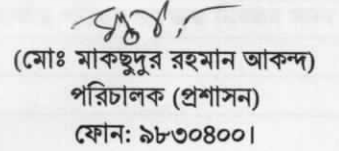 (মোঃ মাকছুদুর রহমান আকন্দ)
পরিচালক (প্রশাসন)
ফোন: ৯৮৩০৪০০।